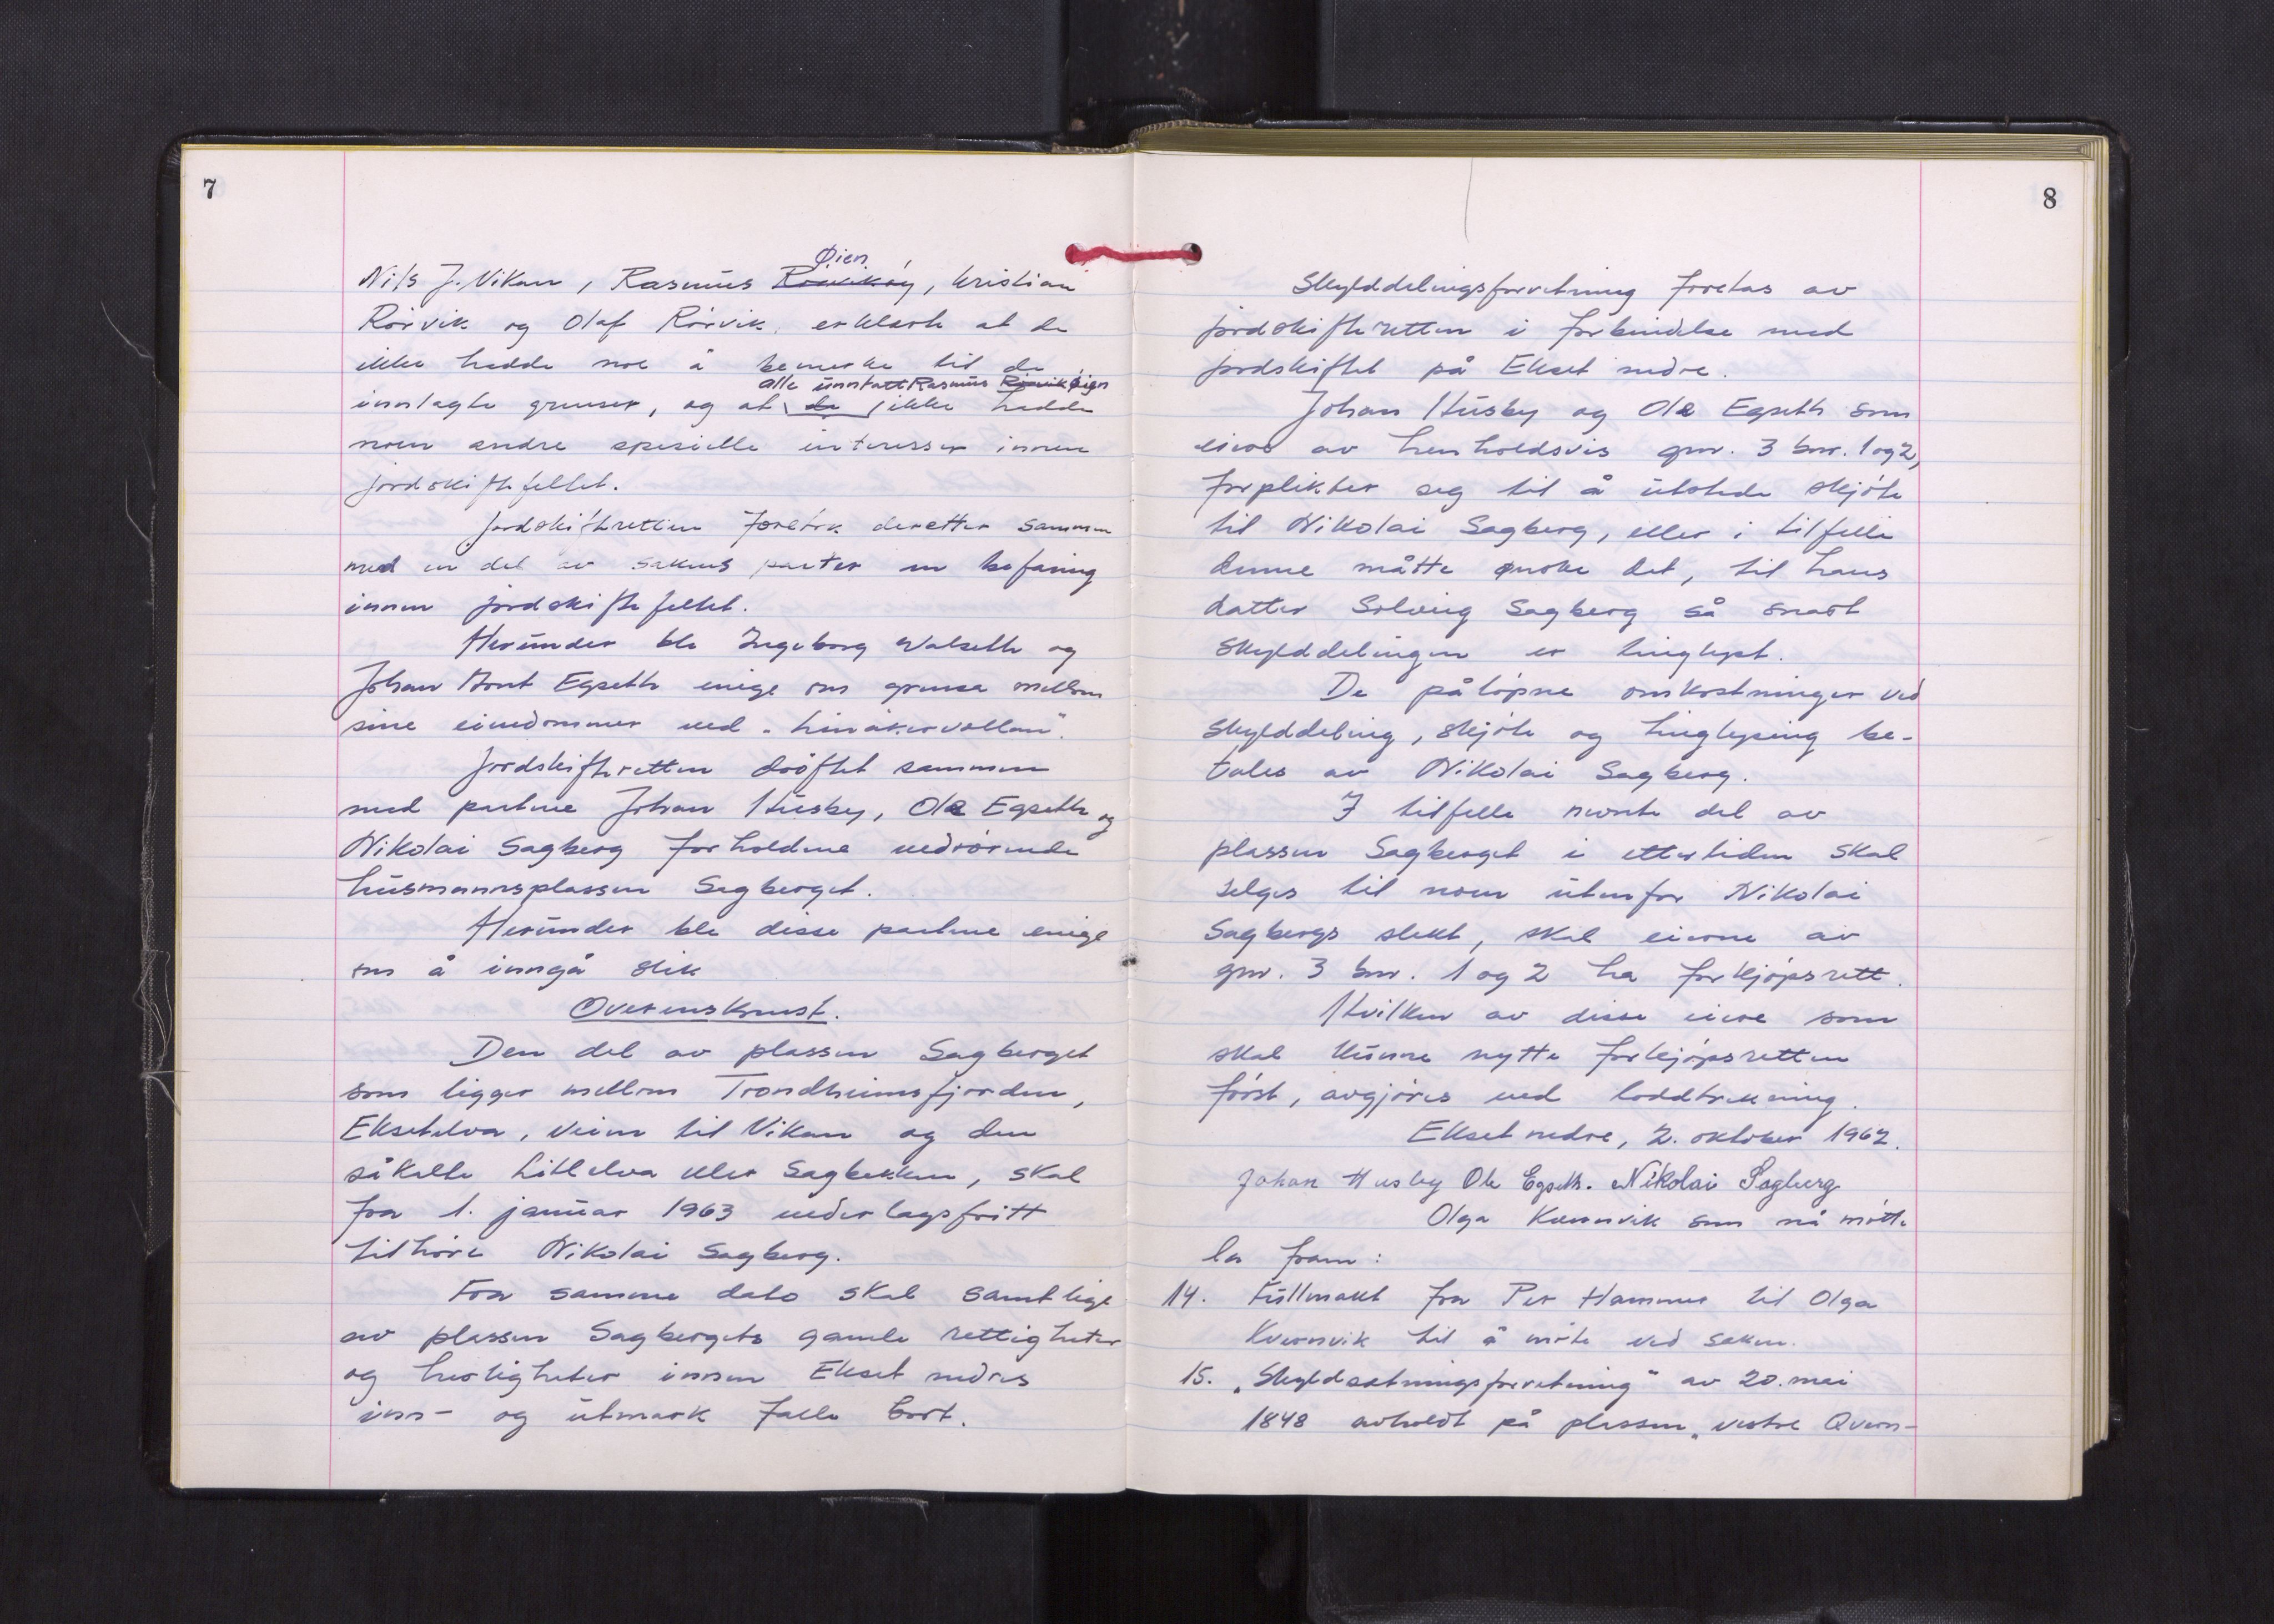 7
Nils J. Vikan, Rasmus Rörvik Øien, Kristian
Rörvik og Olaf Rörvik, erklærte at de
ikke hadde noe å bemerke til de
alle unntatt Rasmus Rörvik Øien
innlagte grenser, og at de ikke hadde
noen andre spesielle interesser innen
jordskiftefeltet.
Jordskifteretten foretok deretter sammen
med en del av sakens parter en befaring
innen jordskiftefeltet.
Herunder ble Ingeborg Valseth og
Johan Arnt Egseth enige om grensa mellom
sine eiendommer ved "Linåkervollan".
Jordskifteretten dröftet sammen
med partene Johan Husby, Ole Egseth og
Nikolai Sagberg forholdene vedrörende
husmannsplassen Sagberget.
Herunder ble disse partene enige
om å inngå slik
Overenskomst.
Den del av plassen Sagberget
som ligger mellom Trondheimsfjorden,
Eksetelva, veien til Vikan og den
såkalte Litlelva eller Sagbekken, skal
fra 1. januar 1963 vederlagsfritt
tilhöre Nikolai Sagberg.
Fra samme dato skal samtlige
av plassen Sagbergets gamle rettigheter
og herligheter innen Ekset nedres
inn- og utmark falle bort.
8
Skylddelingsforretning foretas av
jordskifteretten i forbindelse med
jordskiftet på Ekset nedre.
Johan Husby og Ole Egseth som
eiere av henholdsvis gnr. 3 bnr. 1 og 2,
forplikter seg til å utstede skjöte
til Nikolai Sagberg, eller i tilfelle
denne måtte ønske det, til hans
datter Solveig Sagberg så snart
skylddelingen er tinglyst.
De pålöpne omkostninger ved
skylddeling, skjöte og tinglysing be-
tales av Nikolai Sagberg.
I tilfelle nevnte del av
plassen Sagberget i ettertiden skal
selges til noen utenfor Nikolai
Sagbergs slekt, skal eierne av
gnr. 3 bnr. 1 og 2 ha forkjöpsrett.
Hvilken av disse eiere som
skal kunne nytte forkjöpsretten
först, avgjöres ved loddtrekning.
Ekset nedre, 2. oktober 1962.
Johan Husby Ole Egseth. Nikolai Sagberg
Olga Kvernvik som nå mötte
la fram:
14. Fullmakt fra Per Hammer til Olga
Kvernvik til å möte ved saken.
15. "Skyldsetningsforretning" av 20. mai
1848 avholdt på plassen "vestre Qvern-